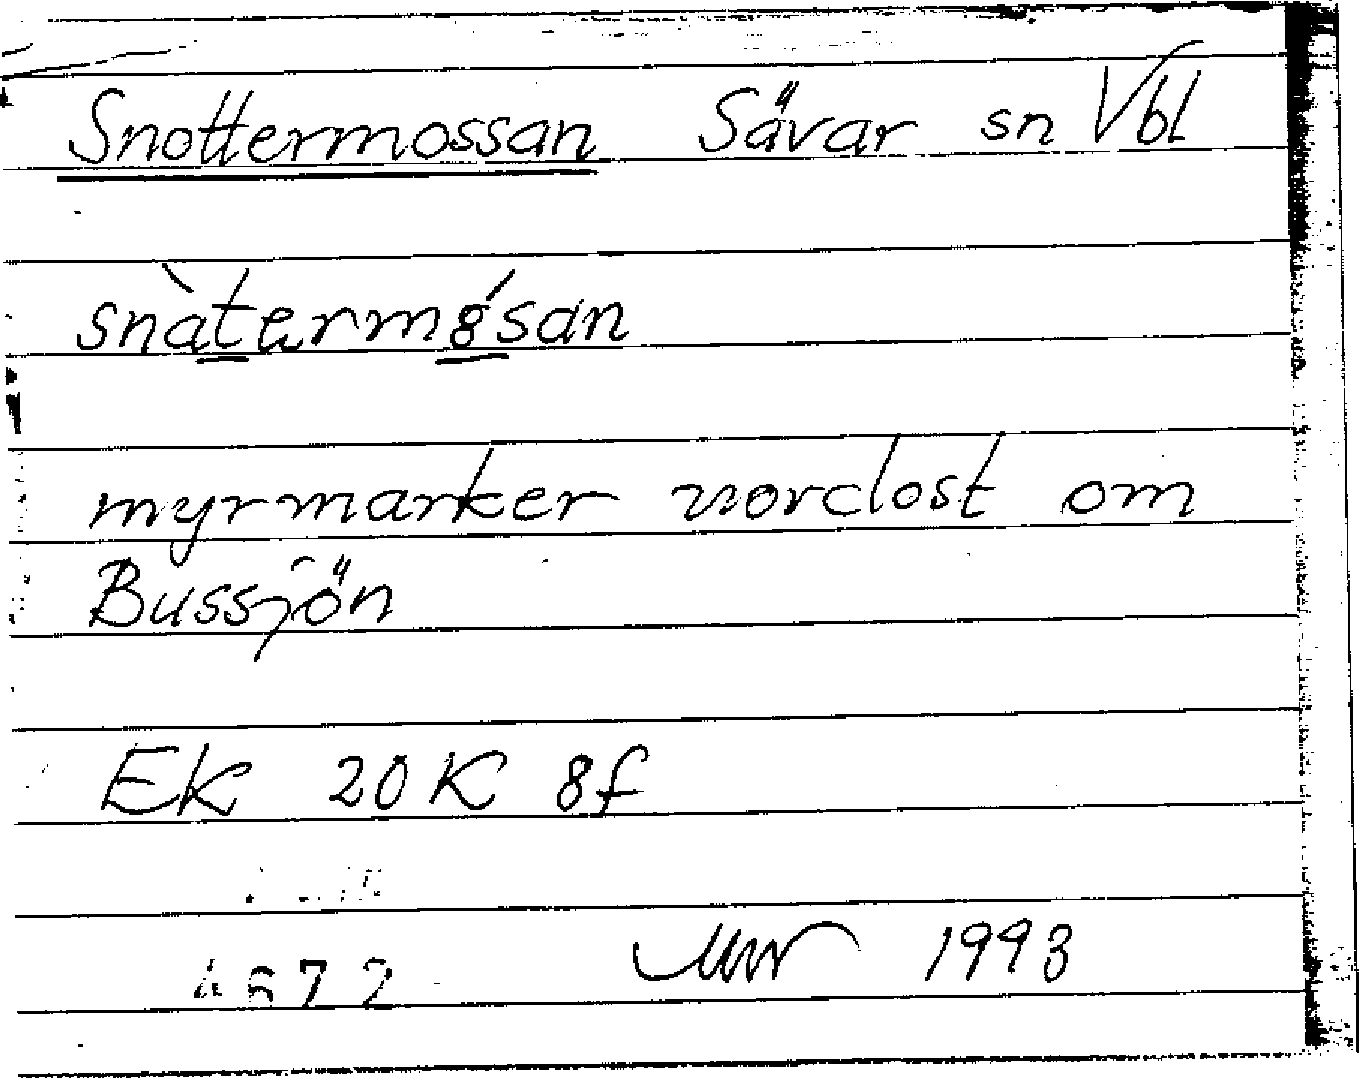 Snottermossan Sävar sn Vbl
snàtermésan
myrmarker nordost om
Bussjön
Ek 20K 8f
1993